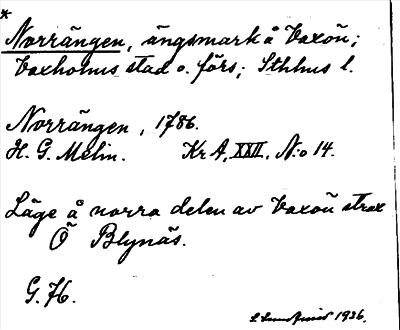 *
Norrängen, ängsmark å Vaxön;
Vaxholms stad o. förs; Sthlms l.
Norrängen, 1786.
H. G. Melin. Kr A, XXII, N:o 14.
Läge å norra delen av Vaxön strax
Ö Blynäs.
G. 76.
1936.